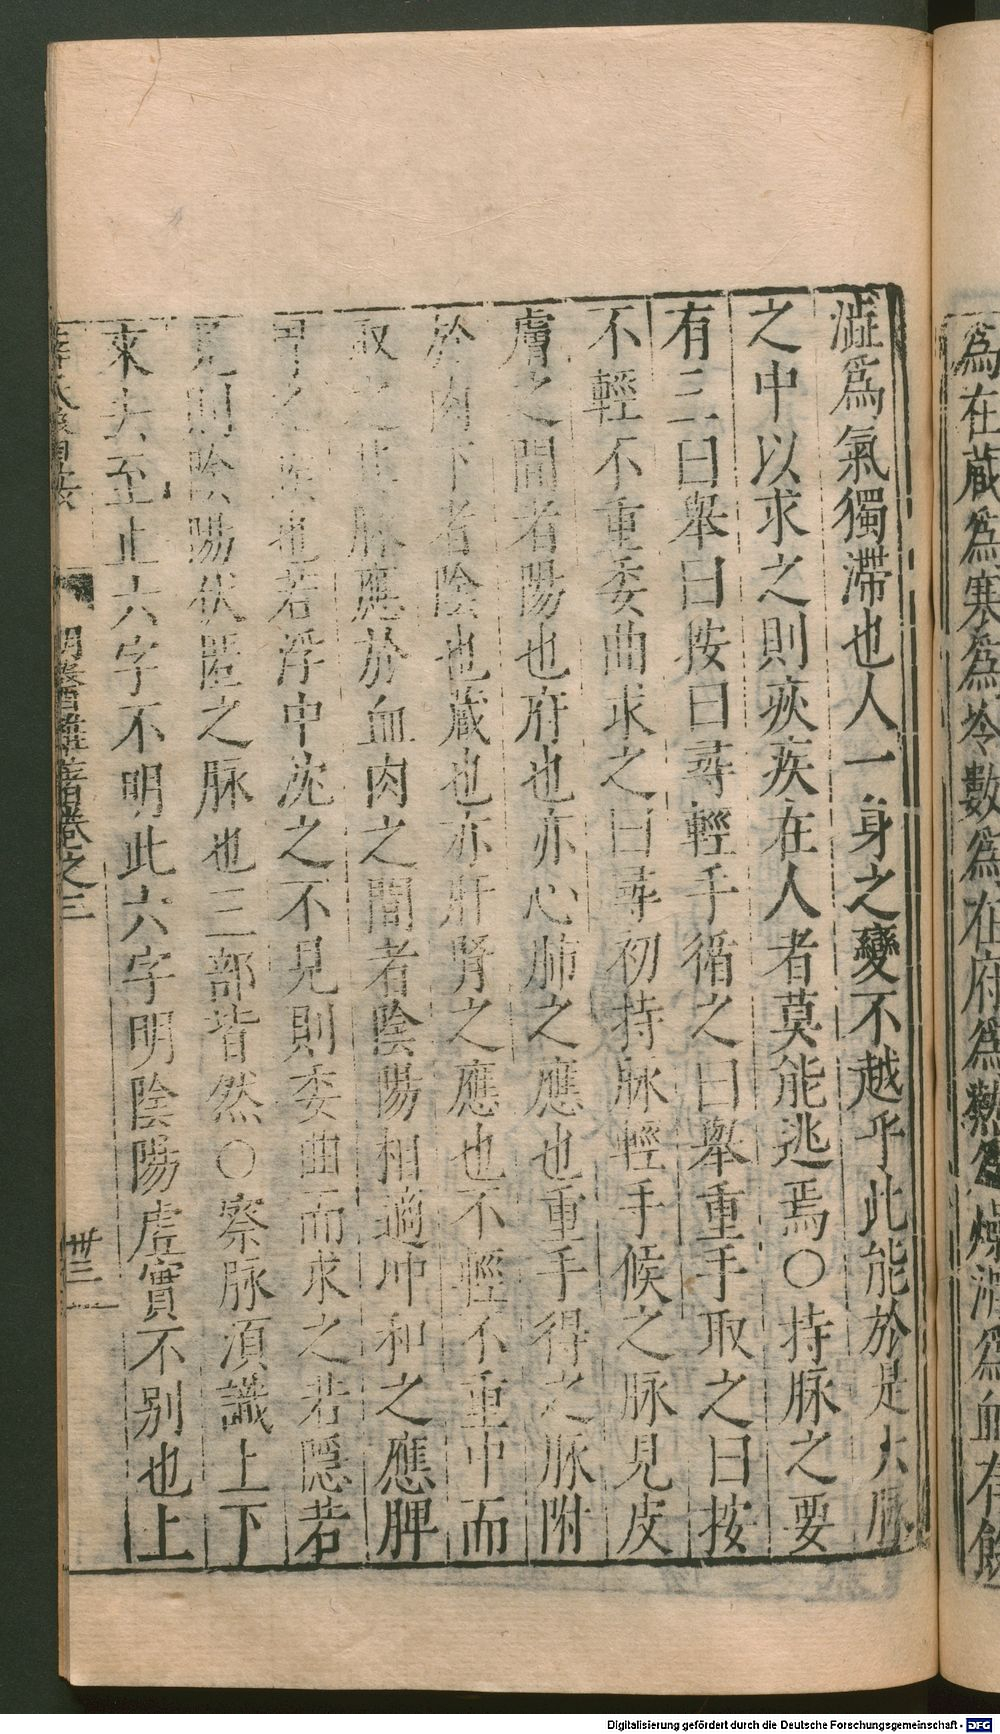 爲在蔵爲寒爲冷數爲在府爲熱爲燥濇爲血有餘
澁爲氣獨滯也人一身之變不越乎此能於是六脉
之中以求之則疢疾在人者莫能逃焉○持脉之要
有三曰舉曰按曰尋輕手循之曰舉重手取之曰按
不輕不重委曲求之曰尋初持脉輕手候之脉見皮
膚之間者陽也府也亦心肺之應也重手得之脉附
於肉下者陰也蔵也亦肝腎之應也不輕不重中而
取之其脉應於血肉之間者陰陽相適冲和之應脾
胃之候也若浮中沈之不見則委曲而求之若隱若
見則陰陽伏匿之脉也三部皆然○察脉須識上下
來去至止六字不明此六字明陰陽虛實不别也上
卷之三
卅三
Digitalisierung gefördert durch die Deutsche Forschungsgemeinschaft - DFG